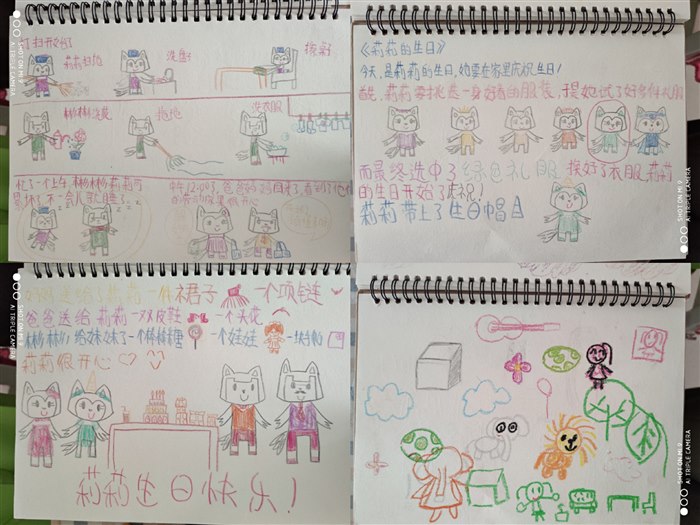 打扫开始了
莉莉扫地
洗盘
擦桌
彬彬浇花
拖地
洗衣服
忙了一个上午,彬彬莉莉可
累坏了,不一会儿就睡了。
z z z
中午12:00了,爸爸妈妈回来了,看到了他们
的劳动成果很开心
《莉莉的生日》
今天,是莉莉的生日,她要在家里庆祝生日!
首先,莉莉要挑选一身好看的服装,于是她试了好多件礼服
而最终选中了绿色礼服,换好了衣服,莉莉
的生日开始了庆祝!
莉莉带上了生日帽
妈妈是给了莉莉一件裙子 一个项链
爸爸送给莉莉一双皮鞋 一个头花
彬彬给妹妹了一个棒棒糖 一个娃娃
莉莉很开心
莉莉生日快乐!
SHOT ON MI 9
AI TRIPLE CAMERA
SHOT ON MI 9
AI TRIPLE CAMERA
SHOT ON MI 9
AI TRIPLE CAMERA
SHOT ON MI 9
AI TRIPLE CAMERA